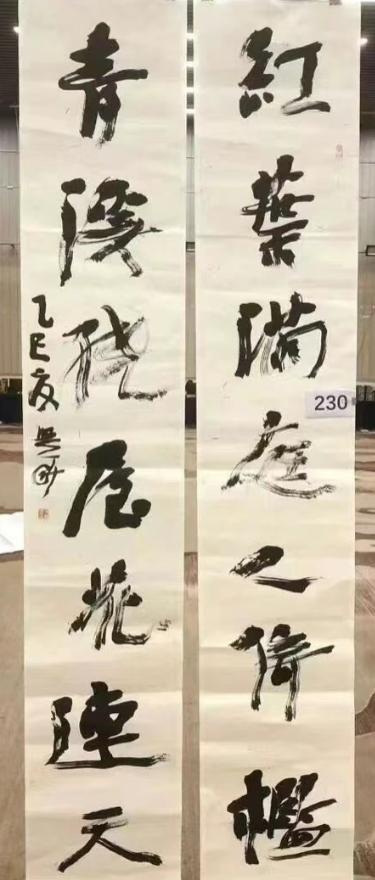 紅葉滿庭人倚檻
青溪繞屋花連天
乙巳夏
230